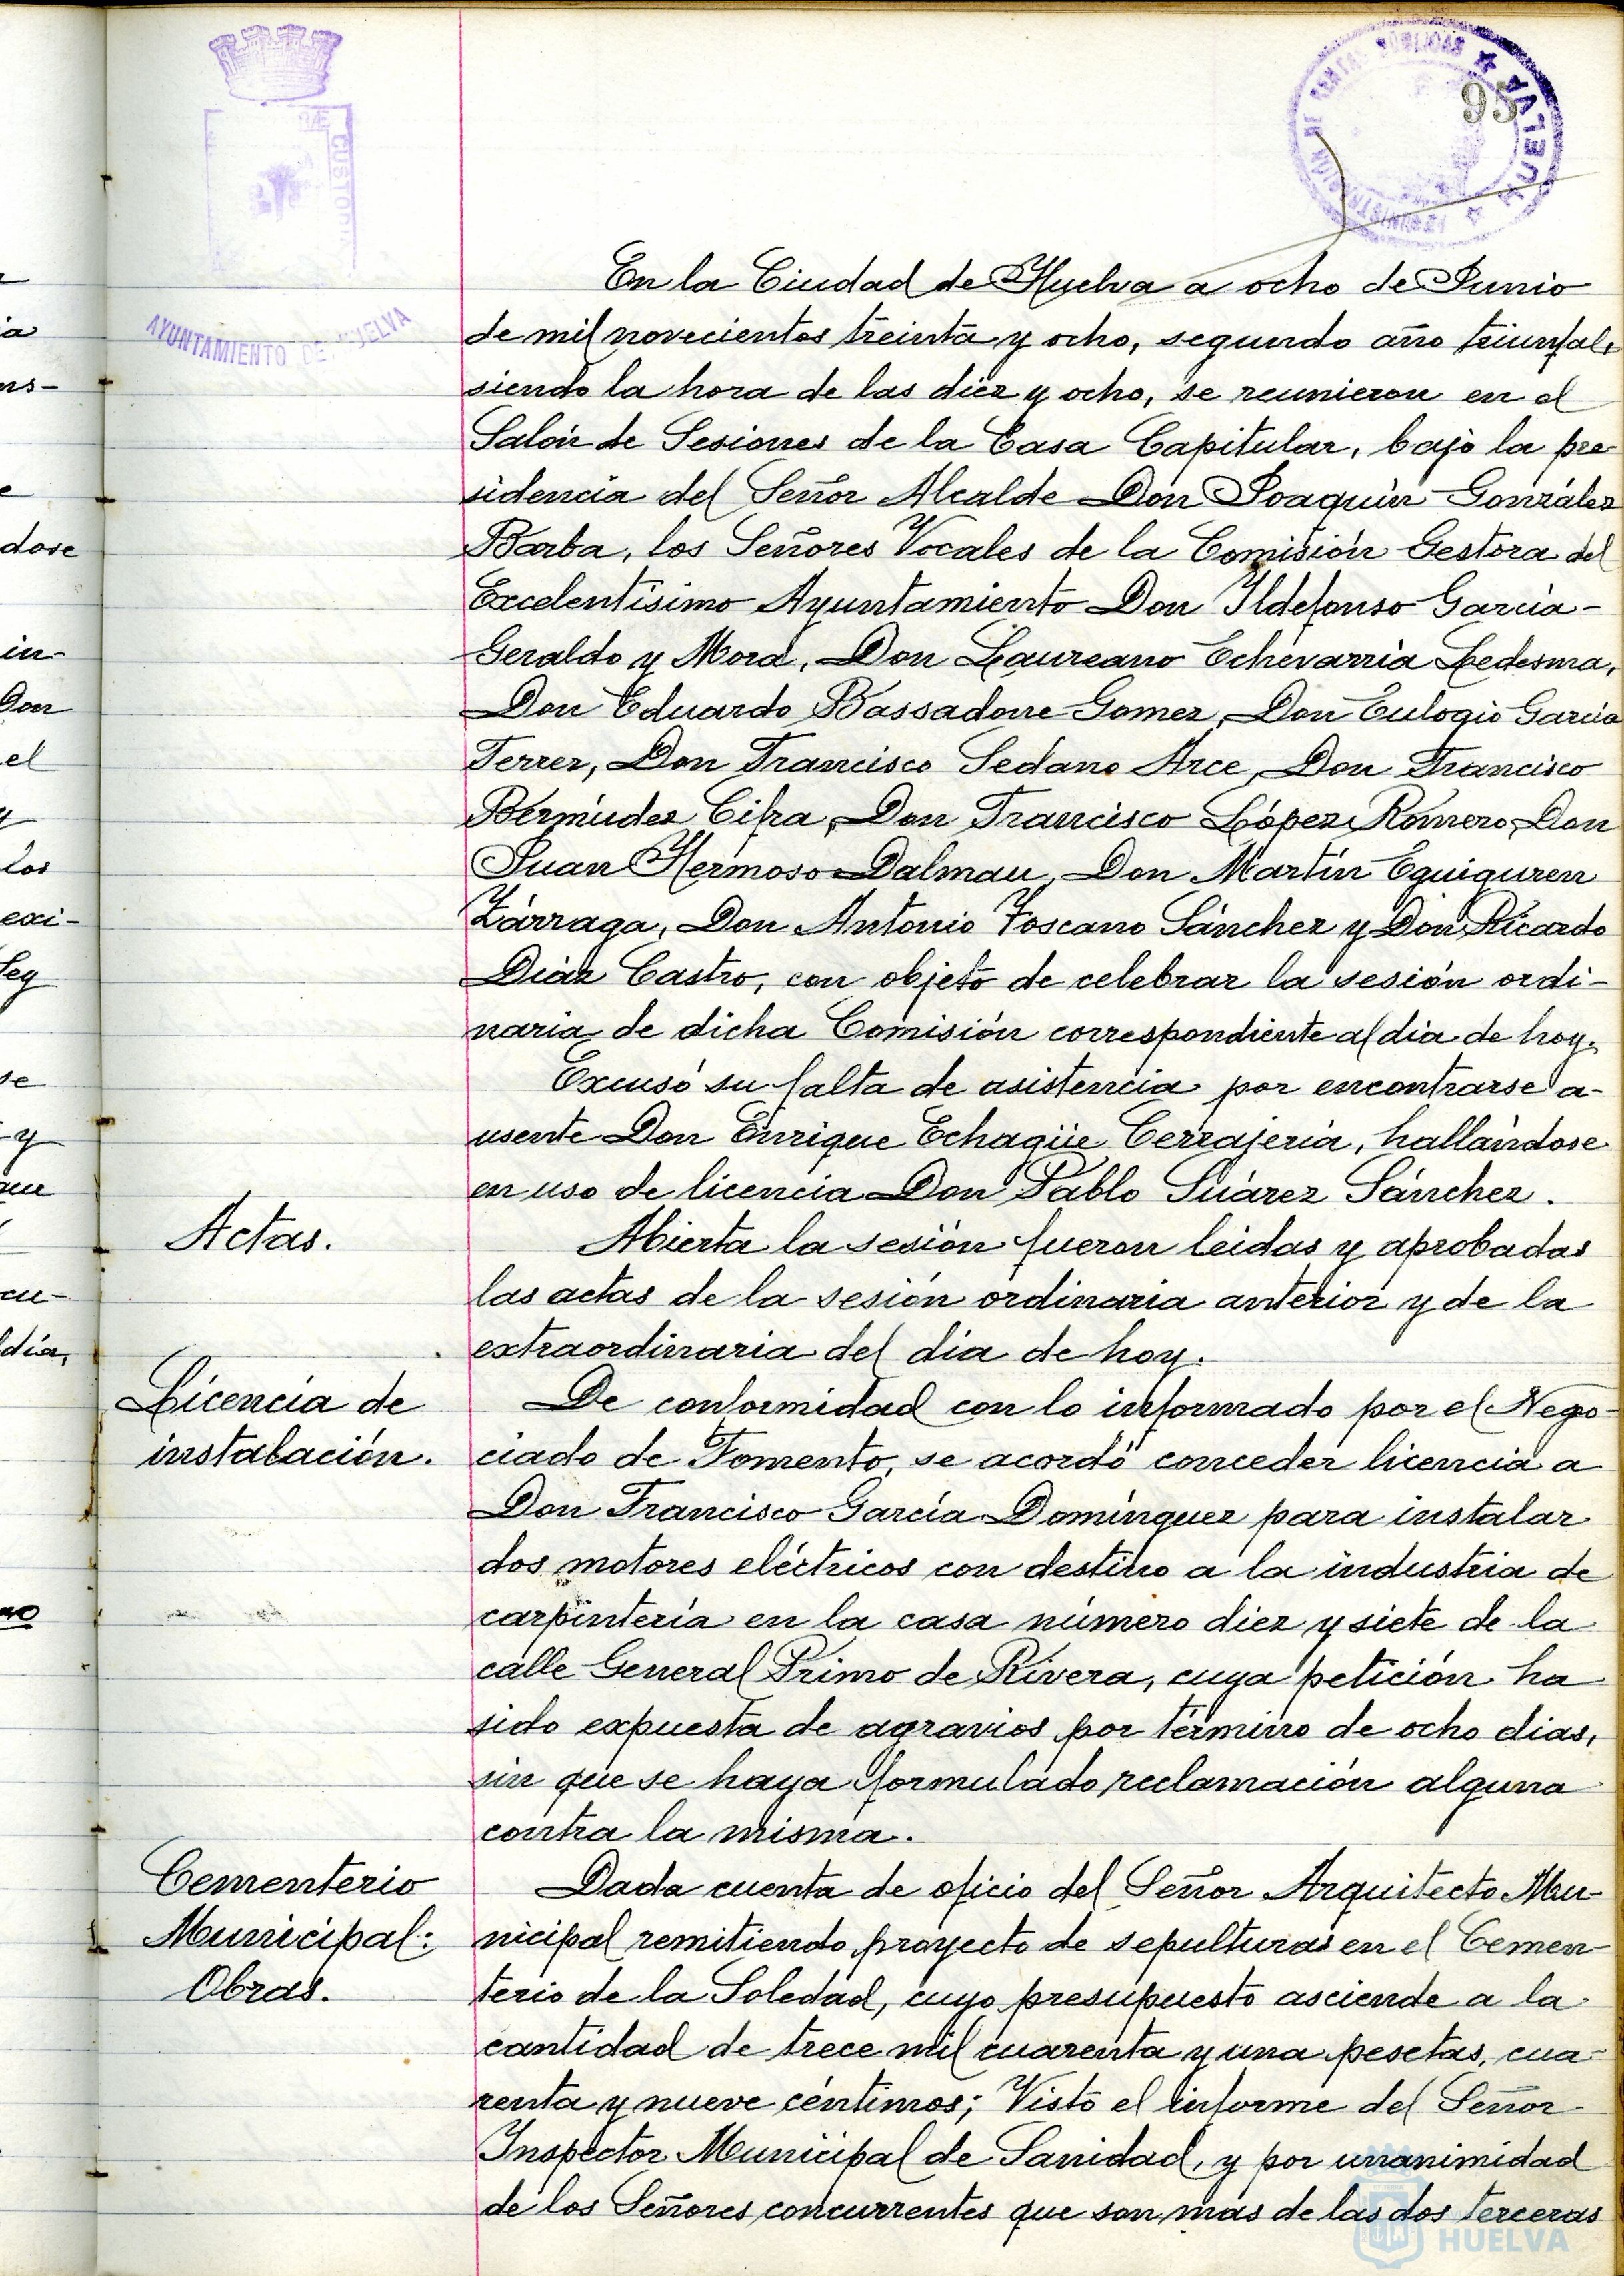 95
AYUNTAMIENTO DE HUELVA
En la Ciudad de Huelva a ocho de Junio
de mil novecientos treinta y ocho, segundo año triunfal,
siendo la hora de las diez y ocho, se reunieron en el
Salón de Sesiones de la Casa Capitular, bajo la pre-
sidencia del Señor Alcalde Don Joaquín González
Barba, los Señores Vocales de la Comisión Gestora del
Excelentísimo Ayuntamiento Don Ildefonso García-
Geraldo y Mora, Don Laureano Echevarría Ledesma,
Don Eduardo Bassadone Gomez, Don Eulogio García
Ferrer, Don Francisco Sedano Arce, Don Francisco
Bermúdez Cifra, Don Francisco López Romero, Don
Juan Hermoso Dalmau, Don Martín Eguiguren
Zárraga, Don Antonio Toscano Sánchez y Don Ricardo
Diáz Castro, con objeto de celebrar la sesión ordi-
naria de dicha Comisión correspondiente al dia de hoy.
Excusó su falta de asistencia por encontrarse a-
usente Don Enrique Echagüe Cerrajería, hallándose
en uso de licencia Don Pablo Suárez Sánchez.
Actas.
Abierta la sesión fueron leidas y aprobadas
las actas de la sesión ordinaria anterior y de la
extraordinaria del dia de hoy.
Licencia de
instalación.
De conformidad con lo informado por el Nego-
ciado de Fomento, se acordó conceder licencia a
Don Francisco García Domínguez para instalar
dos motores eléctricos con destino a la industria de
carpintería en la casa número diez y siete de la
calle General Primo de Rivera, cuya petición ha
sido expuesta de agravios por término de ocho dias,
sin que se haya formulado reclamación alguna
contra la misma.
Cementerio
Municipal:
Obras.
Dada cuenta de oficio del Señor Arquitecto Mu-
nicipal remitiendo proyecto de sepulturas en el Cemen-
terio de la Soledad, cuyo presupuesto asciende a la
cantidad de trece mil cuarenta y una pesetas, cua-
renta y nueve céntimos; Visto el informe del Señor
Inspector Municipal de Sanidad, y por unanimidad
de los Señores concurrentes que son más de las dos terceras
HUELVA